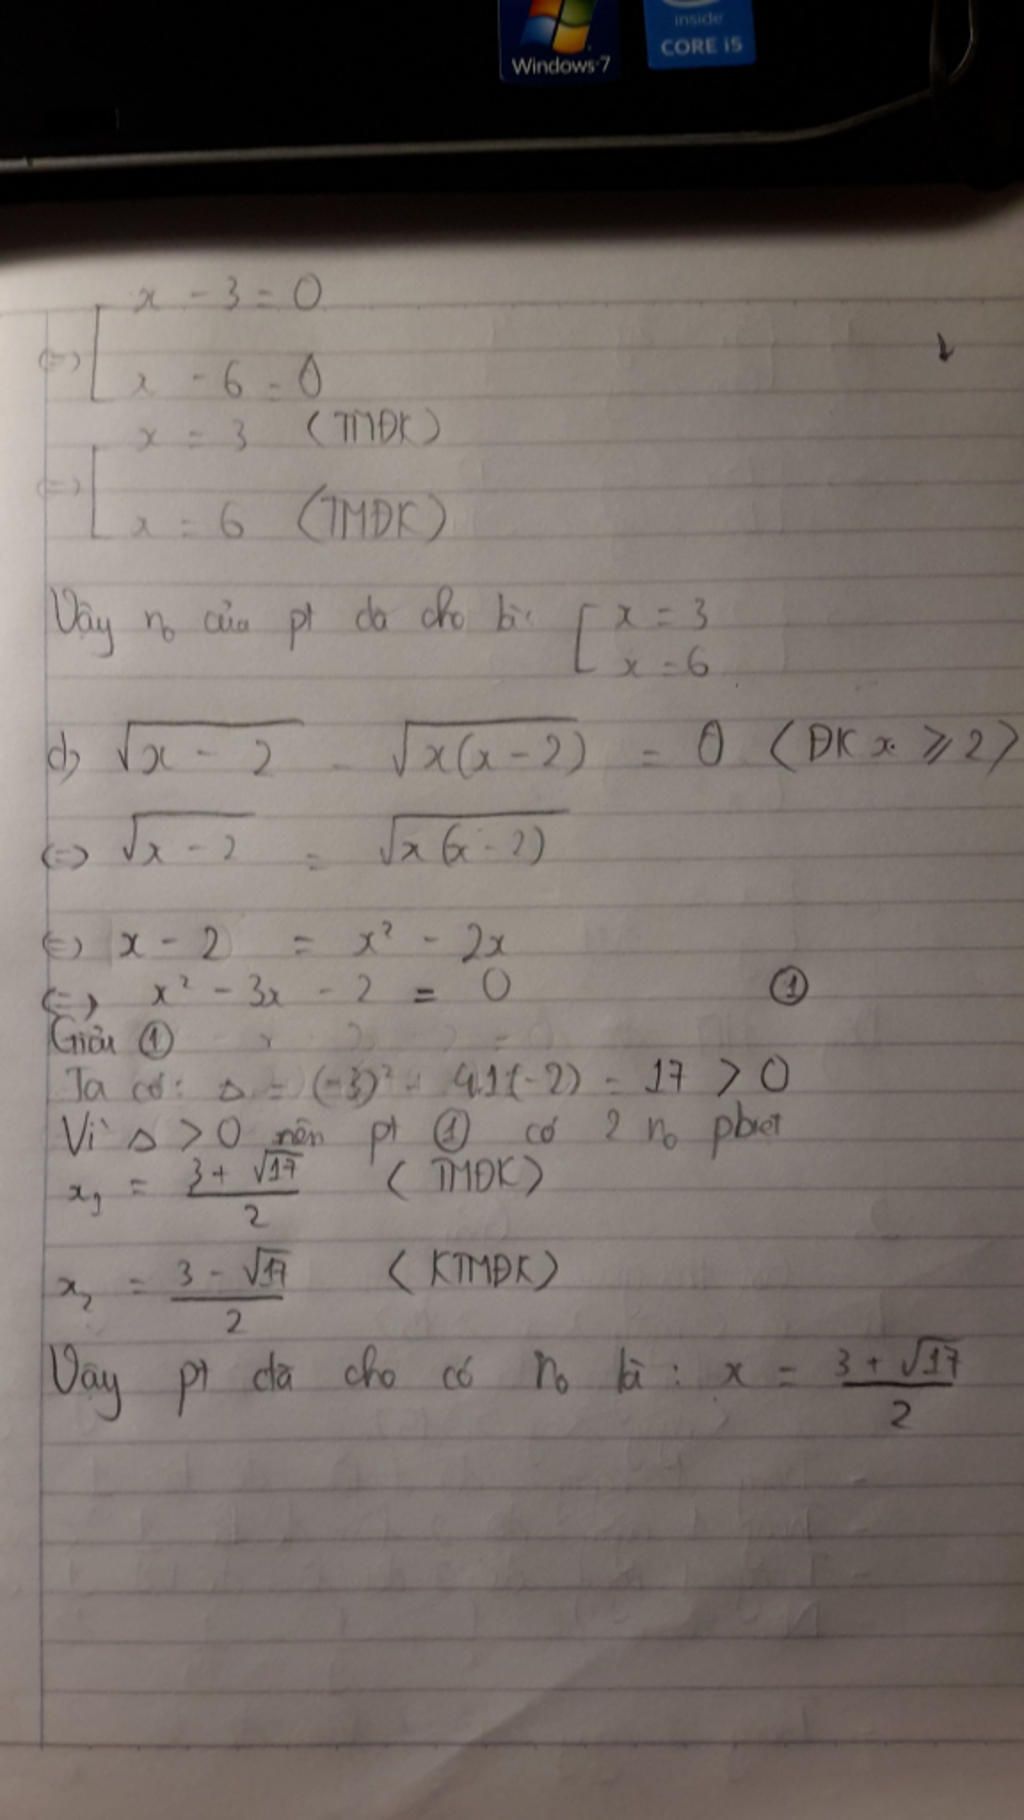 inside
CORE i5
Windows 7
x - 3 = 0
<=> [
x - 6 = 0
x = 3 (TMĐK)
<=> [
x = 6 (TMĐK)
Vậy no của pt đã cho là: [ x = 3
x = 6
d) √(x - 2) - √(x(x - 2)) = 0 (ĐK x ≥ 2)
<=> √(x - 2) = √(x(x - 2))
<=> x - 2 = x² - 2x
<=> x² - 3x - 2 = 0 ①
Giải ①
Ta có: Δ = (-3)² - 4.1(-2) = 17 > 0
Vì Δ > 0 nên pt ① có 2 no pbiệt
x₁ = (3 + √17)/2 (TMĐK)
x₂ = (3 - √17)/2 (KTMĐK)
Vậy pt đã cho có no là: x = (3 + √17)/2